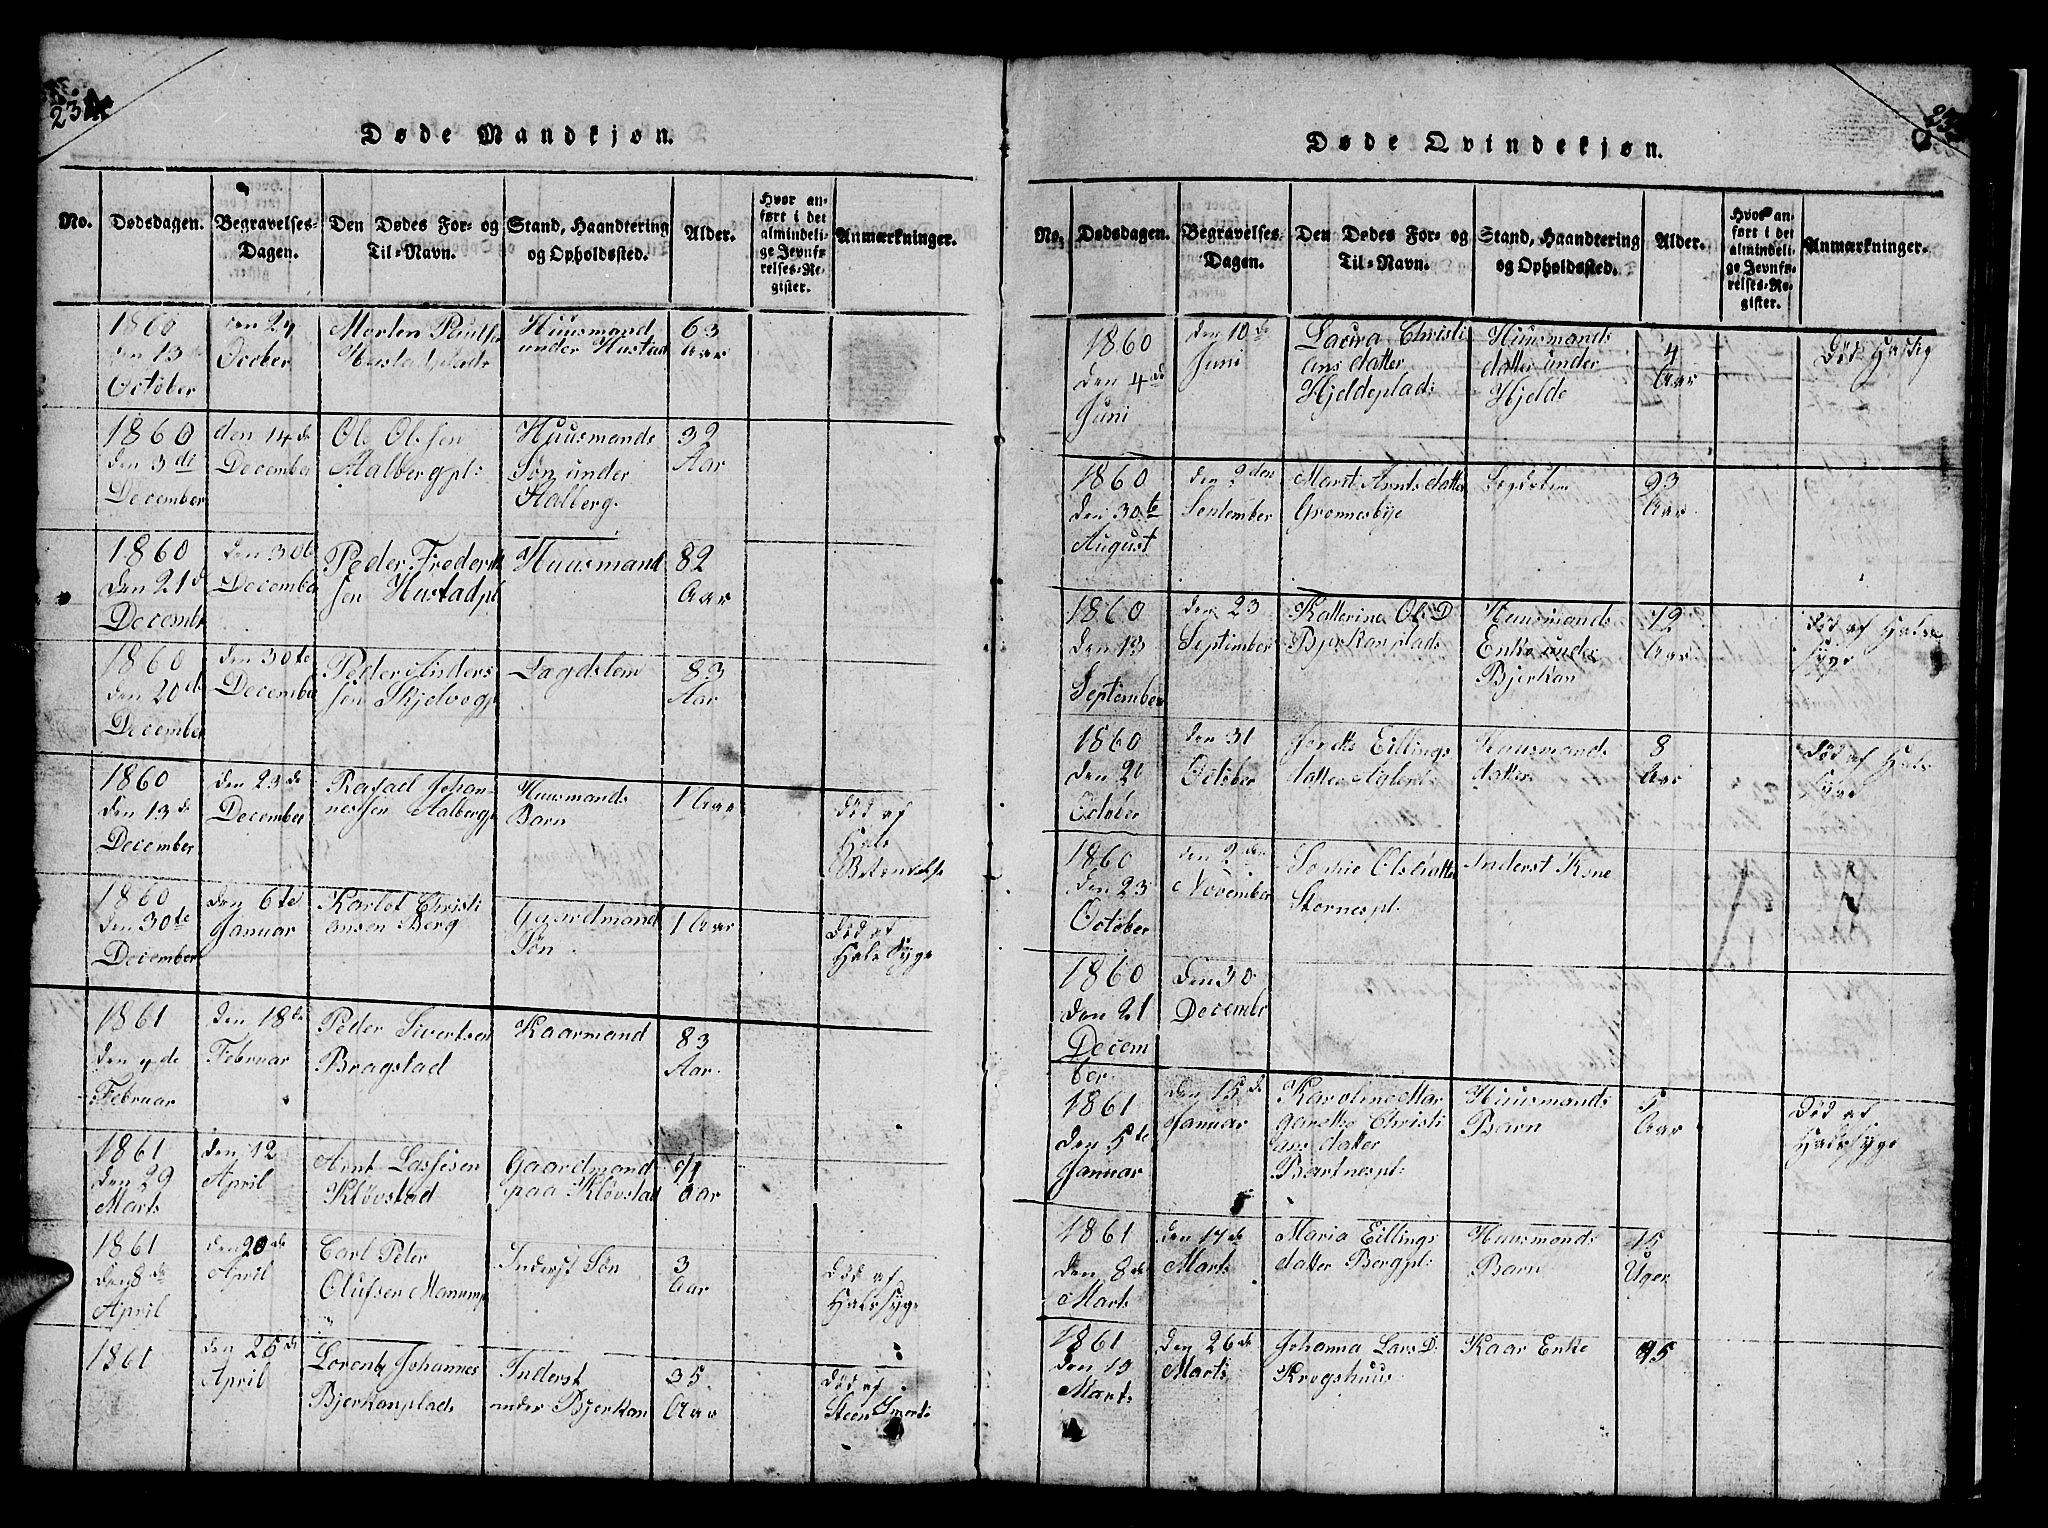 Døde Mandkjøn.
No. Dødsdagen. Begravelses-Dagen. Den Dødes For- og Til-Navn. Stand, Haandtering og Opholdssted. Alder. Hvor anført i det almindelige Jevnførelses-Register. Anmærkninger.
1860 den 24 Morten Paulsen Huusmand 63
den 13 October under Hustad Aar
October
1860 den 14de Ole Olsen Huusmands 32
den 3di December Aalbergpl: Søn under Aar
December Aalberg.
1860 den 30te Peder Frederik Huusmand 82
den 21d December sen Hustadpl Aar
Decembr
1860 den 30te Peder Anders Lægdslem 83
den 20de December sen Skjelvogpl Aar
December
1860 den 23de Rafael Johan- Huusmands 1 Aar død af
den 13de December nessen Aalbergpl Barn Hals
December
1860 den 6te Karlot Christi Gaardmand 1 Aar død af
den 30te Januar ansen Berg Søn Halssyge
December
1861 den 18de Peder Sivertsen Kaarmand 83
den 4de Februar Bragstad Aar.
Februar
1861 den 12 Arnt Lassesen Gaardmand
den 29 April Kløvstad paa Kløvstad Aar
Marts
1861 den 20de Carl Peter Inderst Søn 3 død af
den 8de April Olufsen Manump Aar Halssyge
April
1861 den 25de Lorents Johannes Inderst 35 død af
April Bjerkanplads under Bjerkan Aar Steen Smerte
Døde Qvindekjøn.
No. Dødsdagen. Begravelses-Dagen. Den Dødes For- og Til-Navn. Stand, Haandtering og Opholdssted. Alder. Hvor anført i det almindelige Jevnførelses-Register. Anmærkninger.
1860 den 10de Laura Christi Huusmands 4 død Hastig
den 4de Juni ans datter datter under Aar
Juni Hjeldeplads Hjelde
1860 den 9den Marit Arntsdatter Legdslem 93
den 30te September Grønnesbye Aar
August
1860 den 23 Katterine Ols D Huusmands 72 død af Hals
den 13 September Bjerkanplads Enke under Aar syge
September Bjerkan
1860 den 31 Eillings Huusmands 8 død af Hals
den 21 October datter datter Aar syge
October
1860 den 2den Sophie Olsdatter Inderst Kone
den 23 November Stornespl.
October
1860 den 30
den 21 Decembr
Decem
ber
1861 den 15de Karoline Mar Huusmands 5 død af
den 5te Januar grethe Christi Barn Aar Halssyge
Januar ans datter
Bartnespl:
1861 den 17de Maria Eillings Huusmands 15
den 8de Marts datter Bergpl: Barn Uger
Marts
1861 den 26de Johanna Lars D. Kaar Enke 95
den 19 Marts Krogshuus
Marts